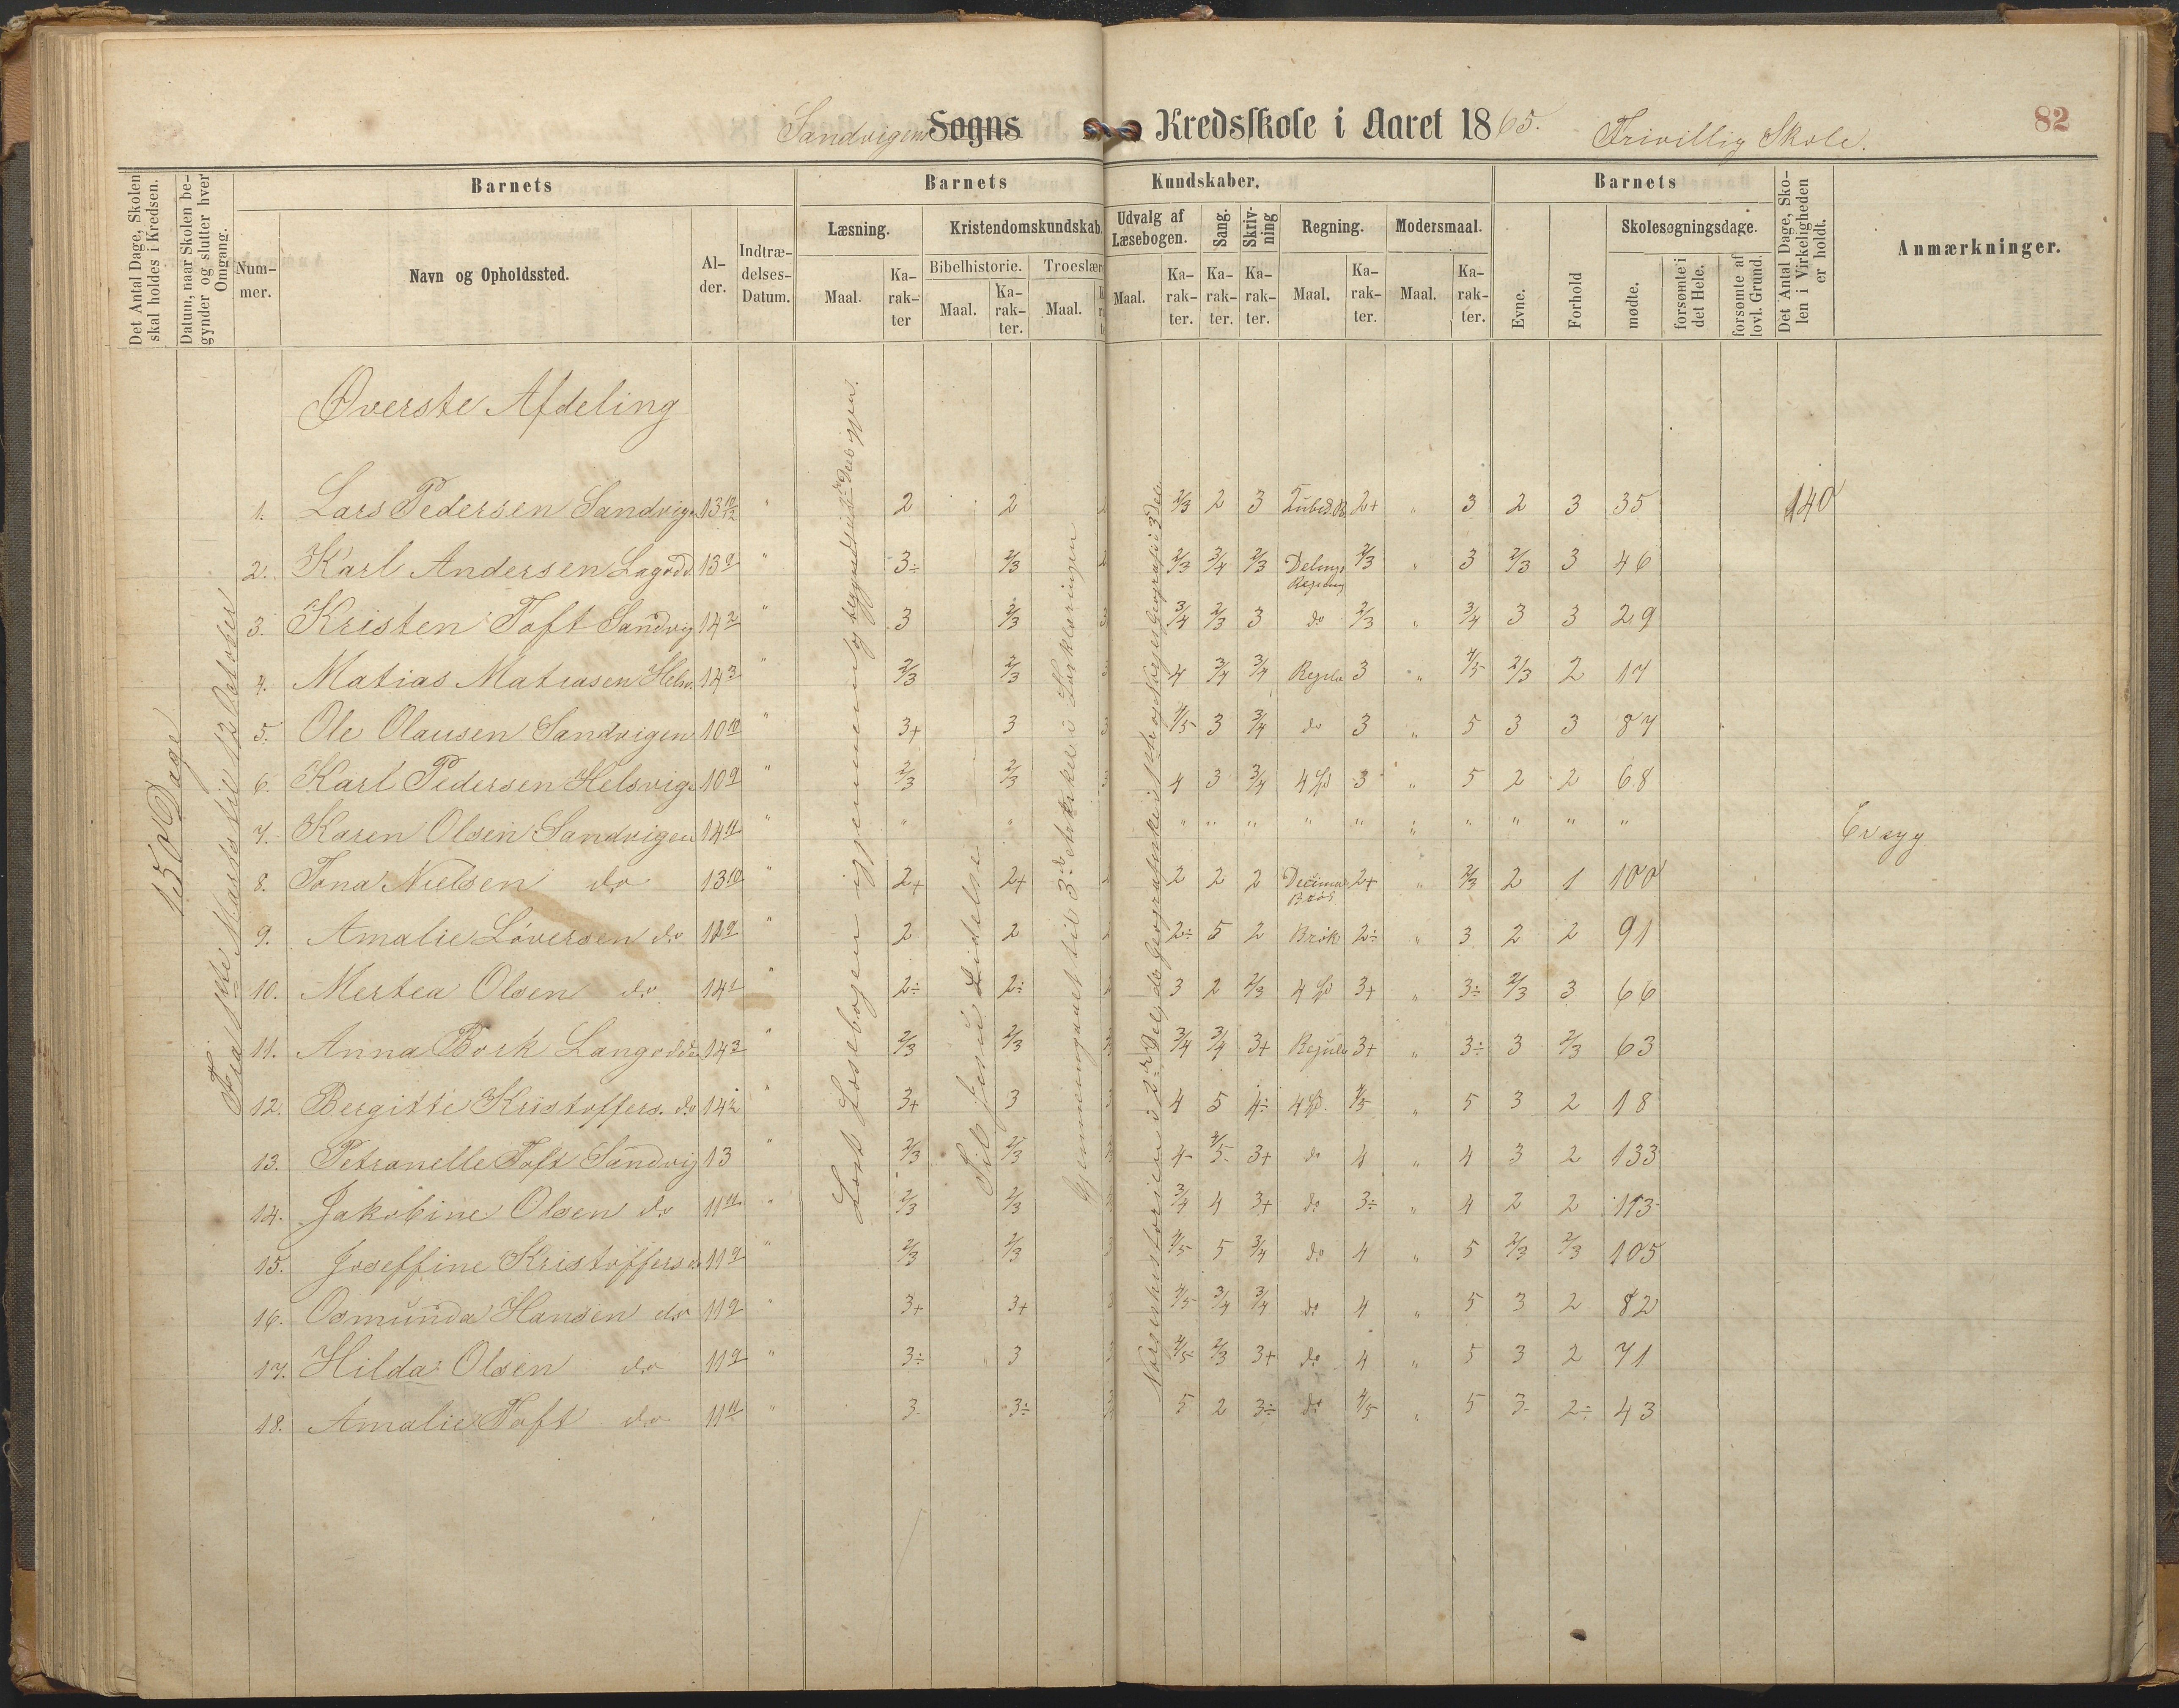 Sandvigens Sogns Kredsskole i Aaret 1865. Frivillig Skole. 82
Det Antal Dage, Skolen skal holdes i Kredsen.
Datum, naar Skolen begynder og slutter hver Omgang.
Barnets
Nummer.
Navn og Opholdssted.
Alder.
Indtrædelses-Datum.
Barnets Kundskaber.
Læsning. Maal. Karakter
Kristendomskundskab.
Bibelhistorie. Maal. Karakter.
Troeslær Maal.
Udvalg af Læsebogen. Maal. Karakter.
Sang. Karakter.
Skrivning Karakter.
Regning. Maal. Karakter.
Modersmaal. Maal. Karakter.
Barnets
Evne.
Forhold
Skolesøgningsdage.
mødte.
forsømte i det Hele.
forsømte af lovl. Grund.
Det Antal Dage, Skolen i Virkeligheden er holdt.
Anmærkninger.
150 Dage
Marts til 13 Oktober
Læst Læsebogen igjennem og begyndt
Til Jesu Lidelse
Gjennemgaaet til 3die Artikel i Forklaringen
Øverste Afdeling
1. Lars Pedersen Sandvig. 13 10/12 " 2 2 2/3 2 3 2+ " 3 2 3 35 140
2. Karl Andersen Lagodd. 13 9 " 3÷ 2/3 2/3 3/4 2/3 Delings Regning 2/3 " 3 2/3 3 46
3. Kristen Toft Sandvig 14 2 " 3 2/3 3/4 2/3 3 do 2/3 " 3/4 3 3 29
4. Matias Matiasen Helsv. 14 3 " 2/3 2/3 4 3/4 3/4 Regula 3 " 4/5 2/3 2 17
5. Ole Olausen Sandvigen 10 10 " 3+ 3 4/5 3 3/4 do 3 " 5 3 3 87
6. Karl Pedersen Helsvig. 10 9 " 2/3 2/3 4 3 3/4 4 Sp 3 " 5 2 2 68
7. Karen Olsen Sandvigen 14 11 " " " " " " " " " " " " " Er syg
8. Tona Nielsen do 13 10 " 2+ 2+ 2 2 2 Decimal Brøk 2+ " 2/3 2 1 100
9. Amalie Løversen do 12 9 " 2 2 2÷ 5 2 Brøk 2÷ " 3 2 2 91
10. Mertea Olsen do 14 1 " 2÷ 2÷ 3 2 2/3 4 Sp 3+ " 3÷ 2/3 3 66
11. Anna Bork Langodde 14 3 " 2/3 2/3 3/4 3/4 3+ Regula 3+ " 3÷ 3 2/3 63
12. Bergitte Kristoffers. do 14 2 " 3+ 3 4 5 4÷ 4 Sp. 4/5 " 5 3 2 18
13. Petronelle Toft Sandvig 13 " 2/3 2/3 4 4/5 3+ do 4 " 4 3 2 133
14. Jakobine Olsen do 11 11 " 2/3 2/3 3/4 4 3+ do 3÷ " 4 2 2 113
15. Joseffine Kristoffers do 11 9 " 2/3 2/3 4/5 5 3/4 do 4 " 5 2/3 2/3 105
16. Osmunda Hansen do 11 9 " 3+ 3+ 4/5 3/4 3/4 do 4 " 5 3 2 82
17. Hilda Olsen do 11 9 " 3÷ 3 4/5 2/3 3+ do 4 " 5 3 2 71
18. Amalie Toft do 11 11 " 3 3÷ 5 2 3÷ do 4/5 " 5 3 2÷ 43